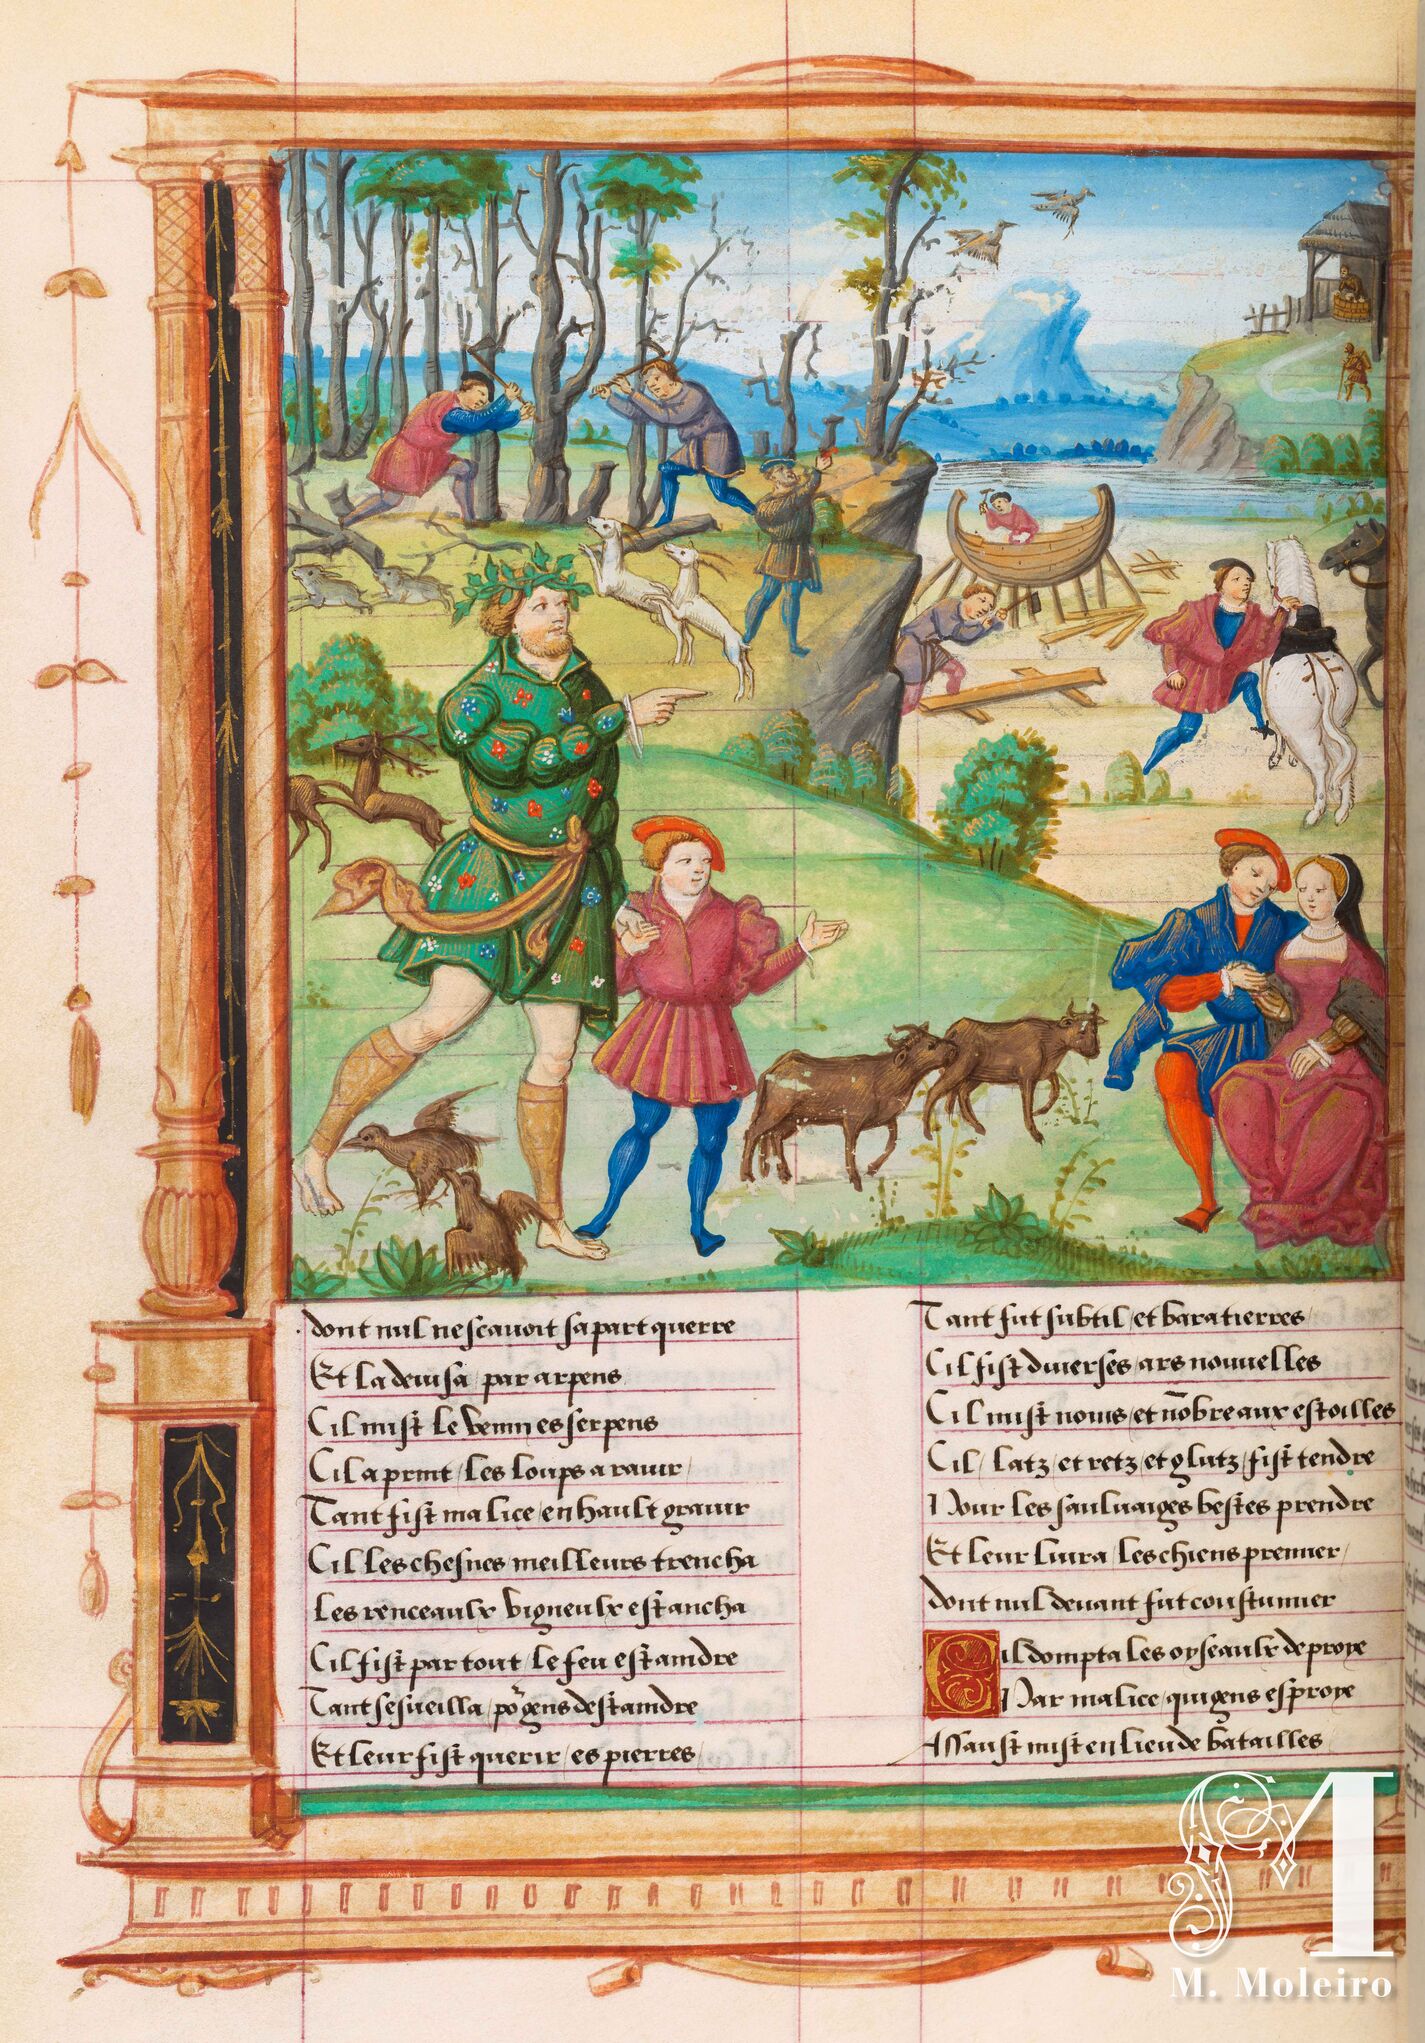 dont nul ne scavoit sa part querre
Et la devisa / par arpens
Cil mist le venin es serpens
Cil aprint / les loups a ravir /
Tant fist malice / en hault gravir
Cil les chesnes / meilleurs trencha
Les renceaulx vigneulx estancha
Cil fist par tout / le feu estaindre
Tant sesveilla / po gens destaindre
Et leur fist querir / es pierres /
Tant fut subtil / et baratierres /
Cil fist diverses / ars nouvelles
Cil mist noms / et nōbre aux estoilles
Cil / latz / et retz / et glutz / fist tendre
Pour les saulvaiges bestes prendre
Et leur livra / les chiens premier /
dont nul devant fut coustumier
Cil dompta les oyseaulx de proye
Par malice / qui gens esproye
Assault mist en lieu de batailles
M
M. Moleiro